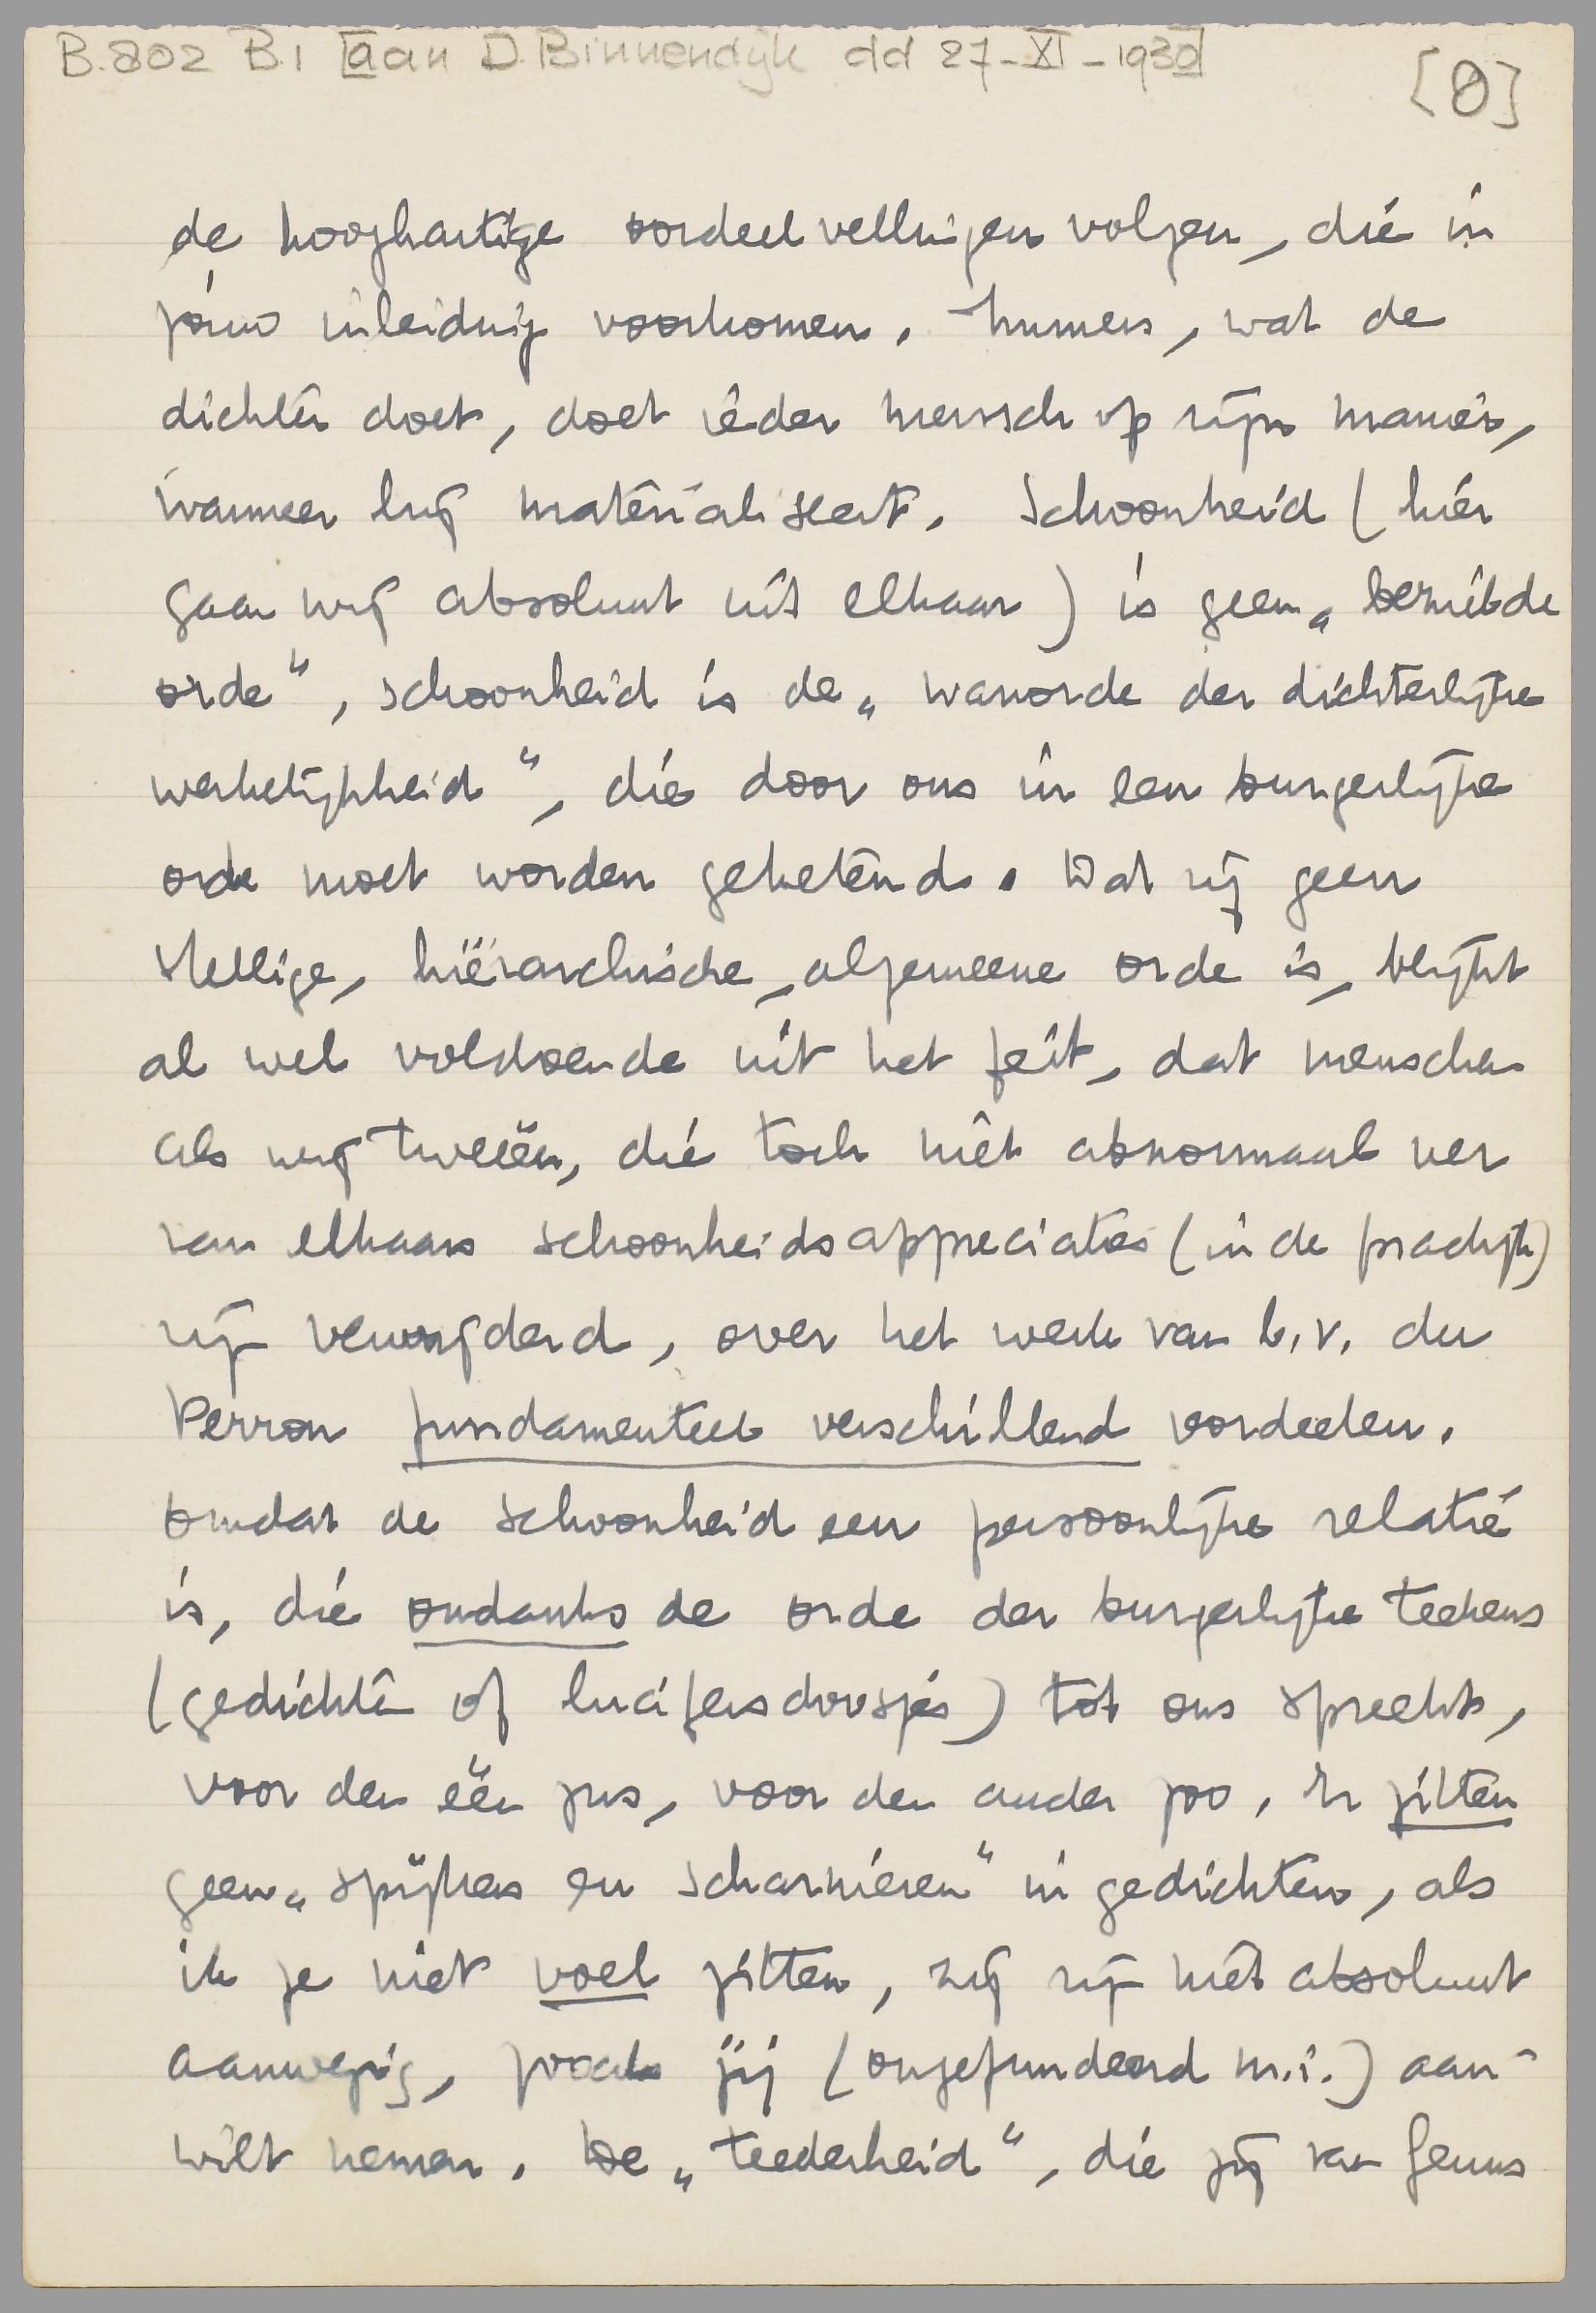 B.802 B.1 [aan D. Binnendijk dd 27-XI-1930]
[0]
de hooghartige oordeelvellingen volgen, die in
jouw inleiding voorkomen. Immers, wat de
dichter doet, doet ieder mensch op zijn manier,
wanneer hij materialiseert. Schoonheid (hier
gaan wij absoluut uit elkaar) is geen „bezielde
orde”, schoonheid is de „wanorde der dichterlijke
werkelijkheid”, die door ons in een burgerlijke
orde moet worden geketend. Dat zij geen
stellige, hiërarchische, algemeene orde is, blijkt
al wel voldoende uit het feit, dat menschen
als wij tweeën, die toch niet abnormaal ver
van elkaars schoonheidsappreciaties (in de practijk)
zijn verwijderd, over het werk van b.v. du
Perron fundamenteel verschillend oordeelen.
Omdat de schoonheid een persoonlijke relatie
is, die ondanks de orde der burgerlijke teekens
(gedichten of lucifersdoosjes) tot ons spreekt,
voor den één zus, voor den ander zoo. Er zitten
geen „spijkers en scharnieren” in gedichten, als
ik ze niet voel zitten, zij zijn niet absoluut
aanwezig, zooals jij (ongefundeerd m.i.) aan-
wilt nemen. De „teederheid”, die jij van Genus